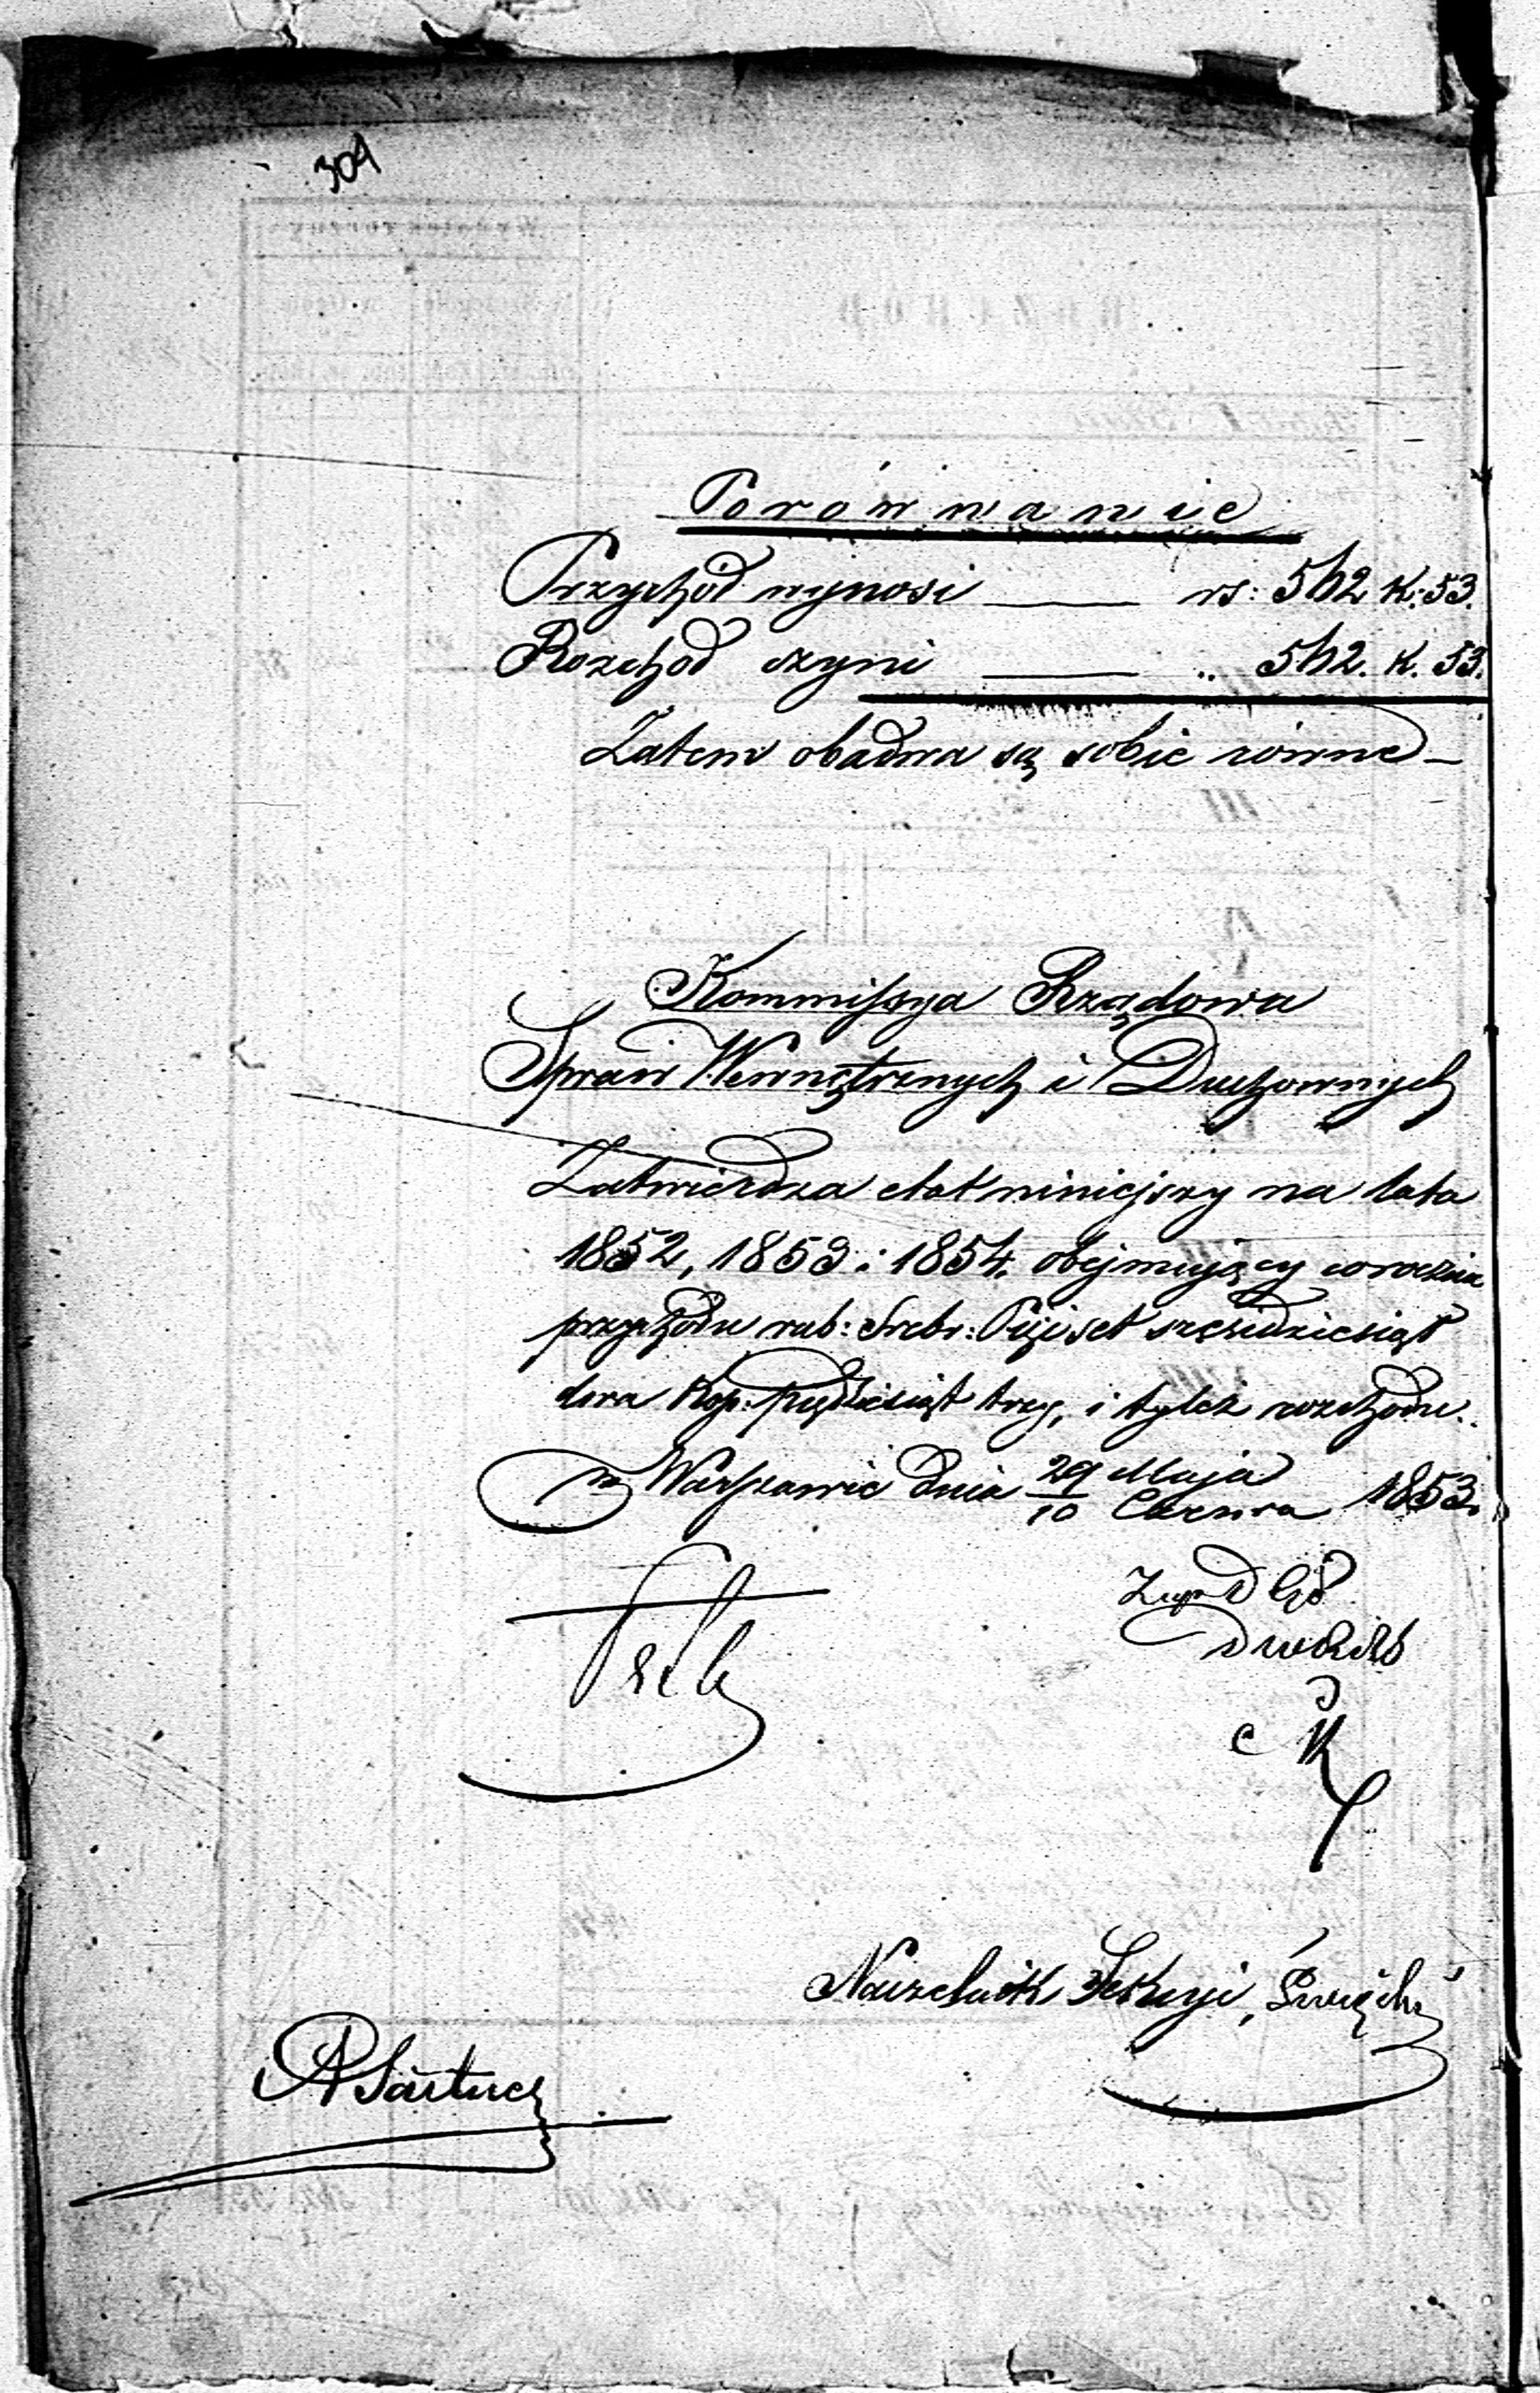 304
Porównanie
Przychód wynosi ——— rs: 562 k: 53.
Rozchod czyni ——— „ 562. k. 53.
Zatem obadwa są sobie równe —
Kommissya Rządowa
Spraw Wewnętrznych i Duchownych
Zatwierdza etat niniejszy na lata
1852, 1853 i 1854. obejmujący corocznie
przychodu rub: Srebr: Pięćset sześćdziesiąt
dwa Kop: pięćdziesiąt trzy, i tyleż rozchodu.
w Warszawie dnia 29 Maja / 10 Czerwca 1853.
Naczelnik Sekcyi,